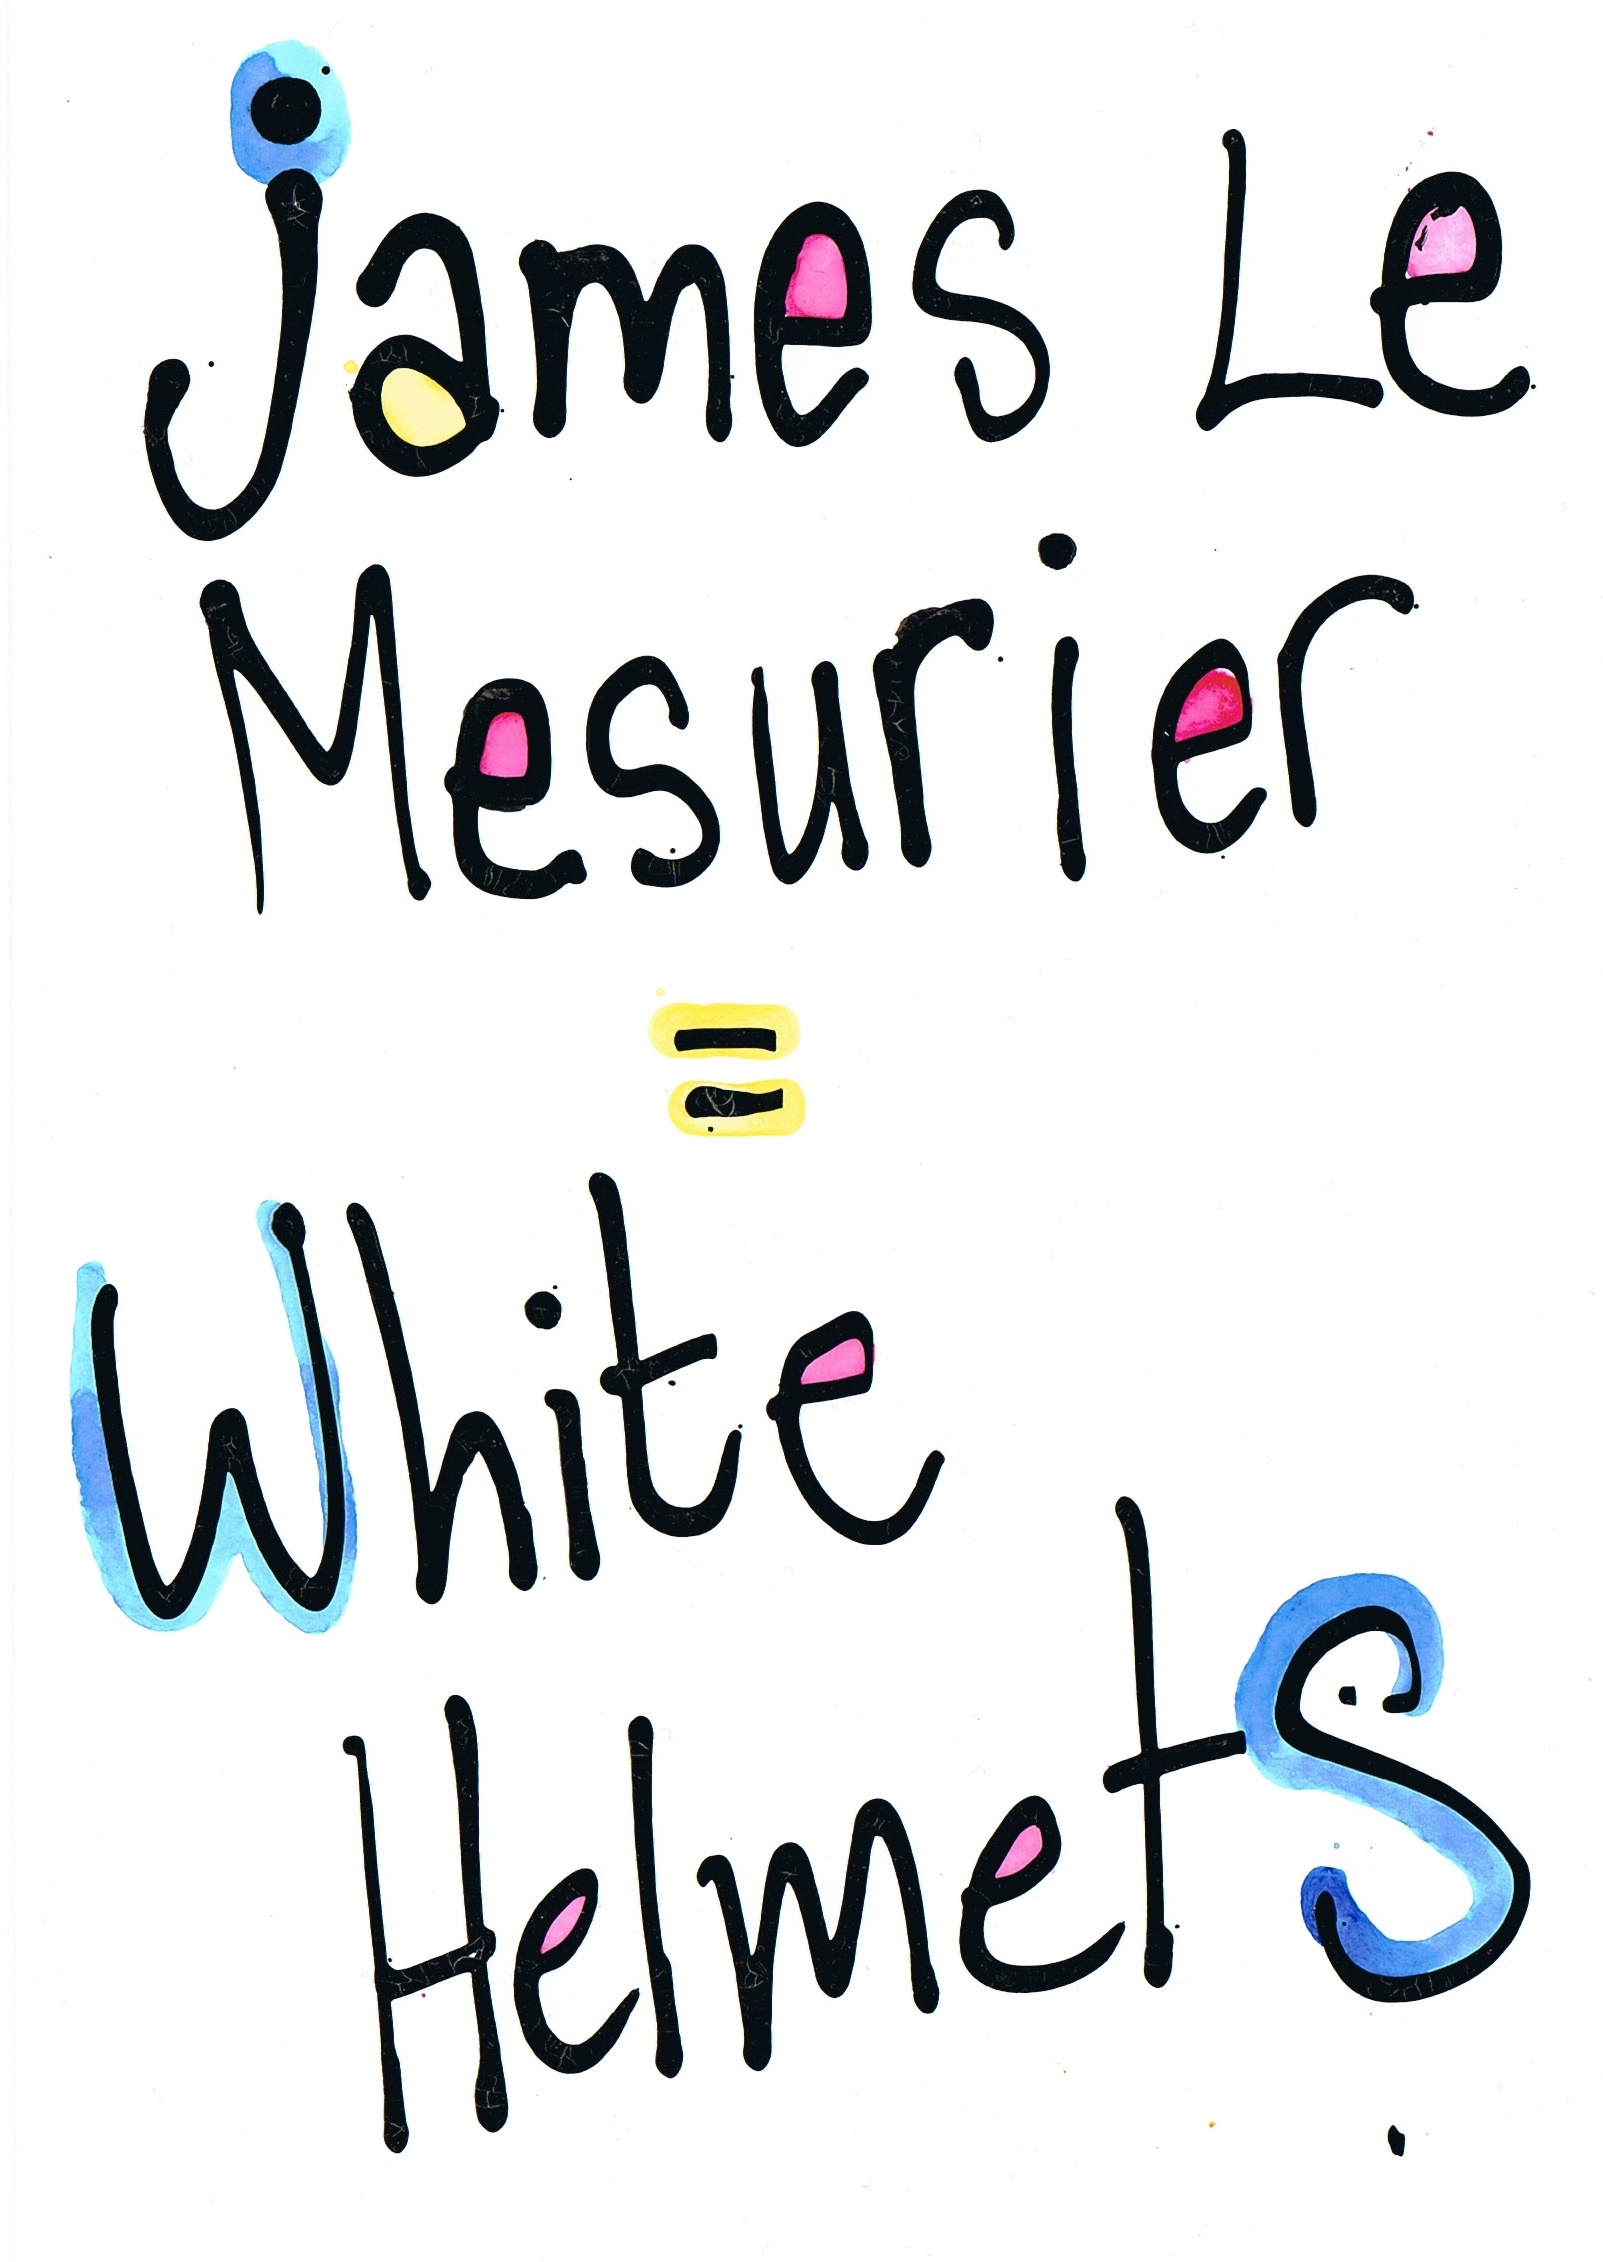 James Le
Mesurier
=
White
Helmets